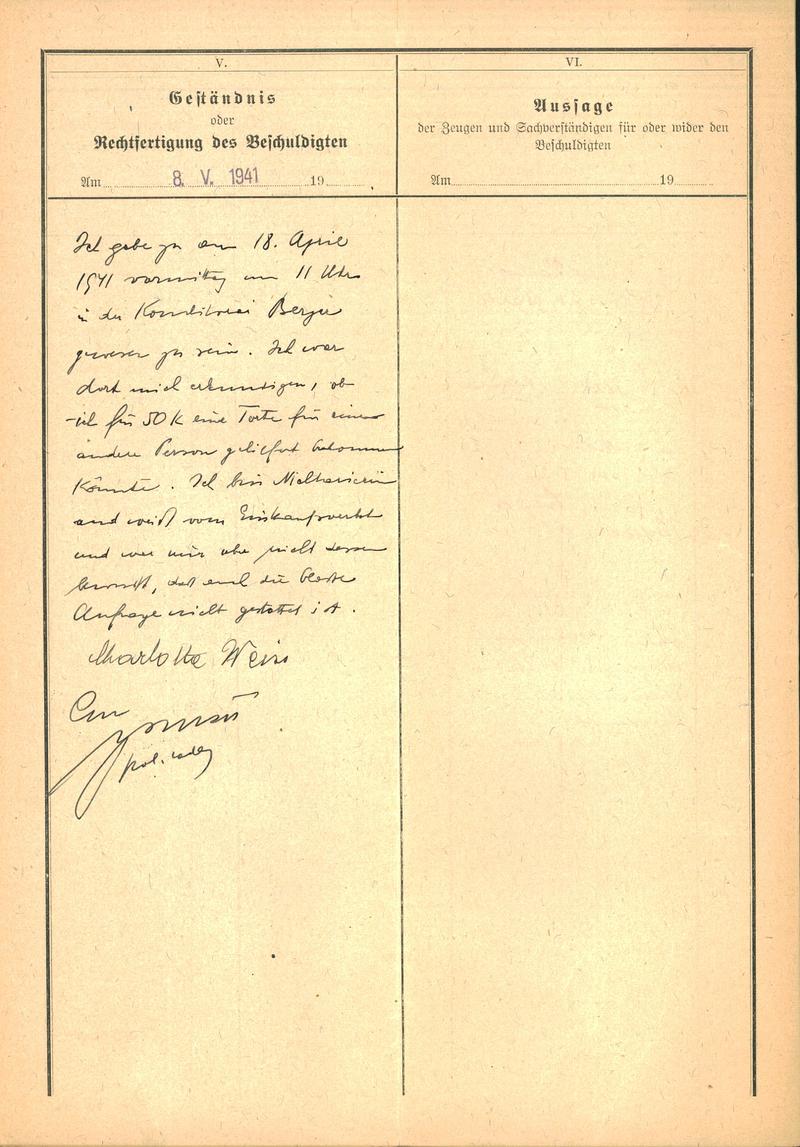 V.
Geständnis
oder
Rechtfertigung des Beschuldigten
Am 8. V. 1941 19
Ich gebe zu am 18. April
1941 vormittag um 11 Uhr
in der Konditorei Berger
gewesen zu sein. Ich war
dort mich erkundigen, ob
ich für 50 K eine Torte für eine
andere Person geliefert bekommen
könnte. Ich bin Nichtarierin
und weiß vom Einkaufsverbot
und war mir aber nicht dessen
bewußt, daß auch die bloße
Anfrage nicht gestattet ist.
Charlotte Weiss
pol.
VI.
Aussage
der Zeugen und Sachverständigen für oder wider den
Beschuldigten
Am 19